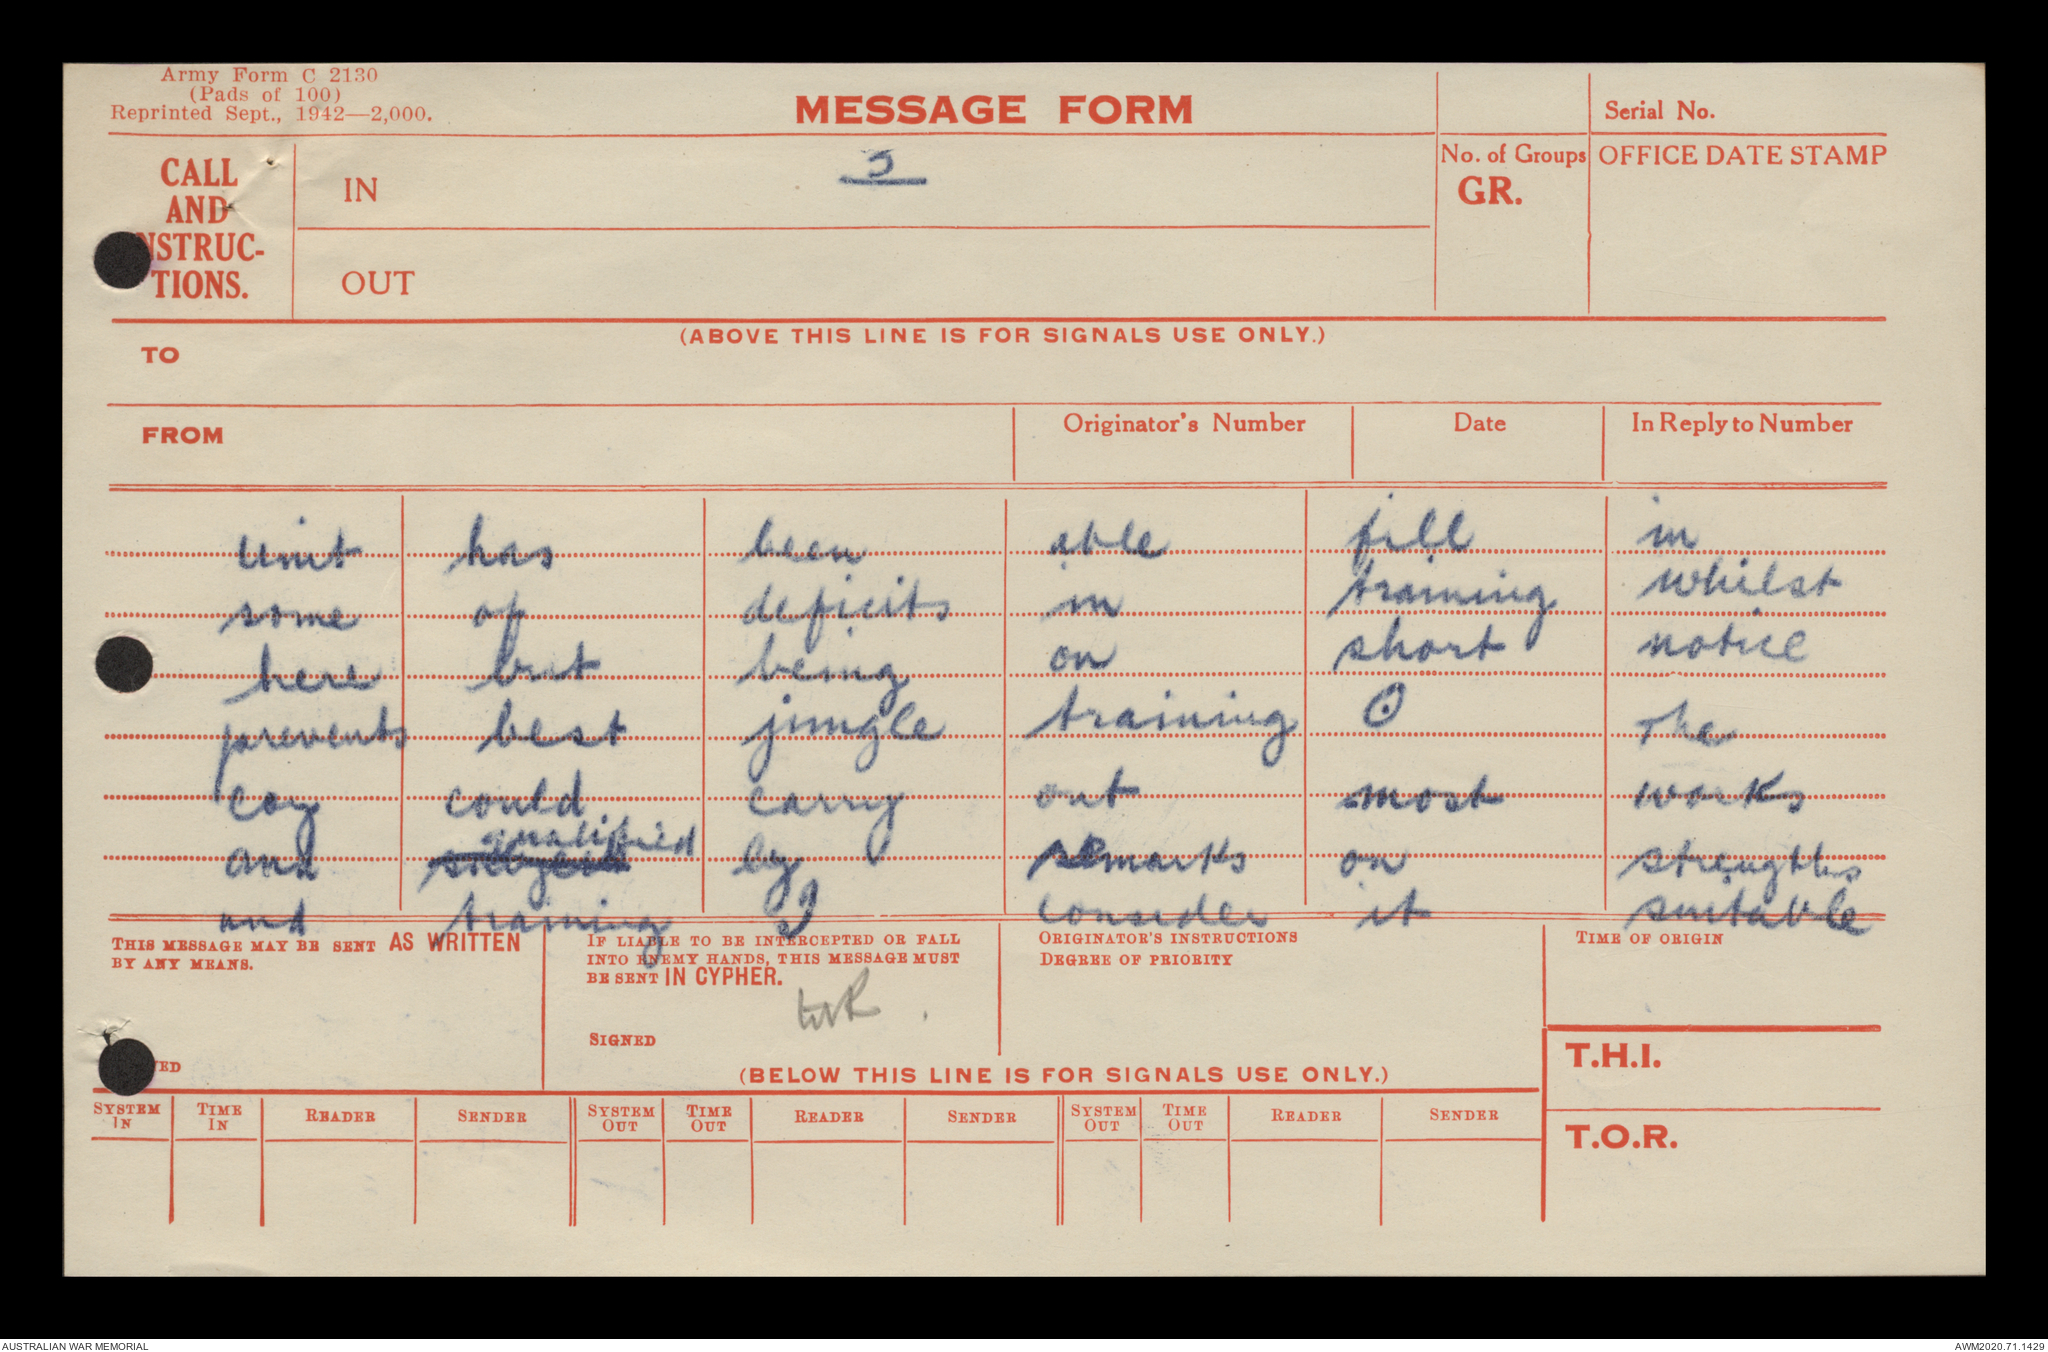 Army Form C 2130
(Pads of 100)
Reprinted Sept., 1942—2,000.
MESSAGE FORM
Serial No.
CALL
AND
NSTRUC-
TIONS.
IN
OUT
No. of Groups
GR.
OFFICE DATE STAMP
(ABOVE THIS LINE IS FOR SIGNALS USE ONLY.)
TO
FROM
Originator's Number
Date
In Reply to Number
unit has been able fill in
some of deficits in training whilst
here but being on short notice
prevents best jungle training ⊙ The
coy could carry out most works
qualified
and by remarks on strengths
and training I consider it suitable
THIS MESSAGE MAY BE SENT AS WRITTEN
BY ANY MEANS.
IF LIABLE TO BE INTERCEPTED OR FALL
INTO ENEMY HANDS, THIS MESSAGE MUST
BE SENT IN CYPHER.
SIGNED
ORIGINATOR'S INSTRUCTIONS
DEGREE OF PRIORITY
TIME OF ORIGIN
ED
(BELOW THIS LINE IS FOR SIGNALS USE ONLY.)
T.H.I.
T.O.R.
SYSTEM IN
TIME IN
READER
SENDER
SYSTEM OUT
TIME OUT
READER
SENDER
SYSTEM OUT
TIME OUT
READER
SENDER
AUSTRALIAN WAR MEMORIAL
AWM2020.71.1429